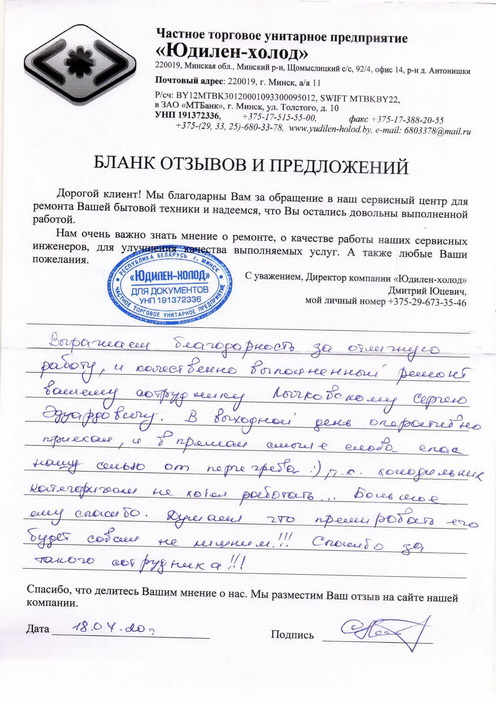 Частное торговое унитарное предприятие
«Юдилен-холод»
220019, Минская обл., Минский р-н, Щомыслицкий с/с, 92/4, офис 14, р-н д. Антонишки
Почтовый адрес: 220019, г. Минск, а/я 11
Р/сч: BY12MTBK30120001093300095012, SWIFT MTBKBY22,
в ЗАО «МТБанк», г. Минск, ул. Толстого, д. 10
УНП 191372336, +375-17-515-55-00, факс +375-17-388-20-55
+375-(29, 33, 25)-680-33-78, www.yudilen-holod.by, e-mail: 6803378@mail.ru
БЛАНК ОТЗЫВОВ И ПРЕДЛОЖЕНИЙ
Дорогой клиент! Мы благодарны Вам за обращение в наш сервисный центр для
ремонта Вашей бытовой техники и надеемся, что Вы остались довольны выполненной
работой.
Нам очень важно знать мнение о ремонте, о качестве работы наших сервисных
инженеров, для улучшения качества выполняемых услуг. А также любые Ваши
пожелания.
РЕСПУБЛИКА БЕЛАРУСЬ Г. МИНСК
«ЮДИЛЕН-ХОЛОД»
ДЛЯ ДОКУМЕНТОВ
УНП 191372336
ЧАСТНОЕ ТОРГОВОЕ УНИТАРНОЕ ПРЕДПРИЯТИЕ
С уважением, Директор компании «Юдилен-холод»
Дмитрий Юцевич,
мой личный номер +375-29-673-35-46
Выражаем благодарность за отличную
работу, и качественно выполненный ремонт
вашему сотруднику Лычковскому Сергею
Эдуардовичу. В выходной день оперативно
приехал, и в прямом смысле слова спас
нашу семью от перегрева :), т.к. холодильник
категорически не хотел работать... Большое
ему спасибо. Думаем что премировать его
будет совсем не лишним!!! Спасибо за
такого сотрудника!!!
Спасибо, что делитесь Вашим мнение о нас. Мы разместим Ваш отзыв на сайте нашей
компании.
Дата 18.04.20г. Подпись